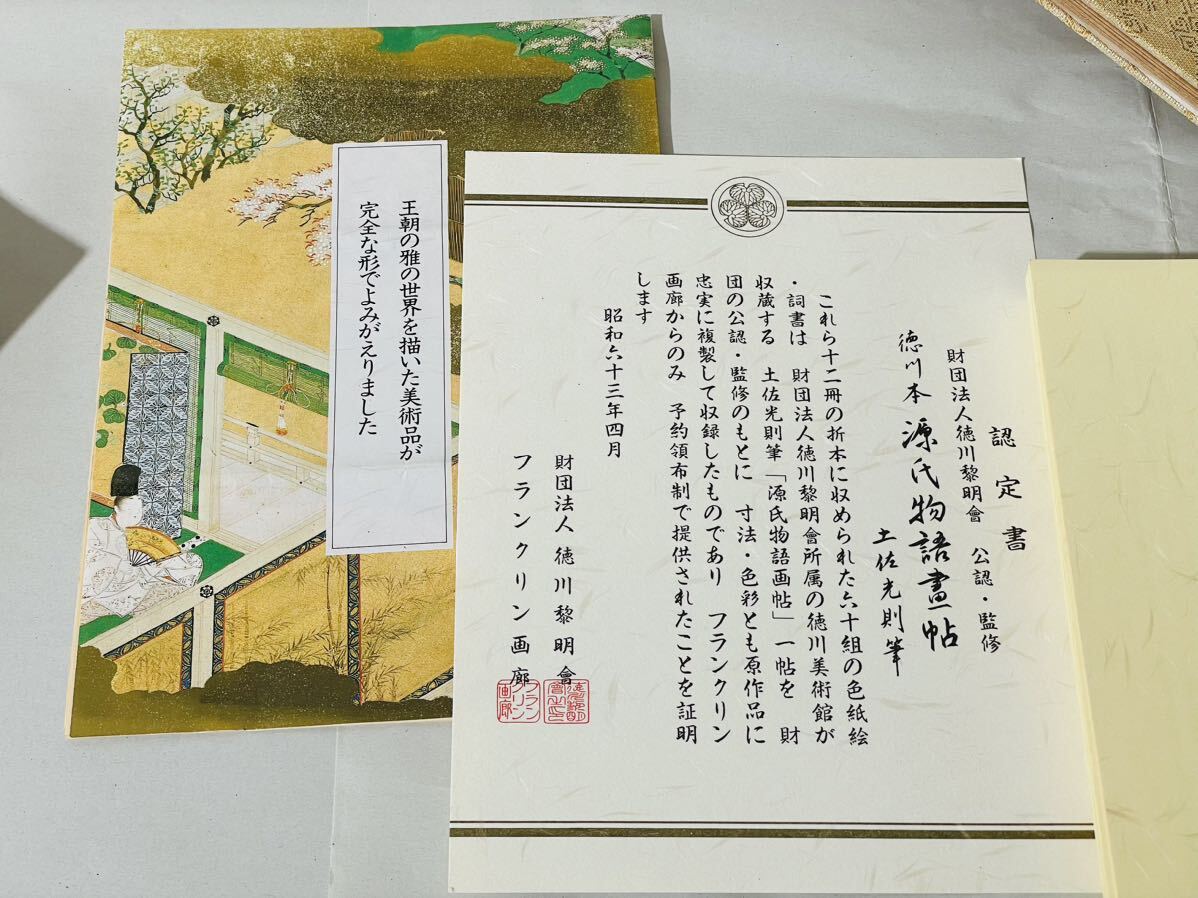 王朝の雅の世界を描いた美術品が
完全な形でよみがえりました
認定書
財団法人徳川黎明會 公認・監修
徳川本 源氏物語畫帖
土佐光則筆
これら十二冊の折本に収められた六十組の色紙絵
・詞書は 財団法人徳川黎明會所属の徳川美術館が
収蔵する 土佐光則筆「源氏物語画帖」一帖を 財
団の公認・監修のもとに 寸法・色彩とも原作品に
忠実に複製して収録したものであり フランクリン
画廊からのみ 予約領布制で提供されたことを証明
します
昭和六十三年四月
財団法人徳川黎明會
フランクリン画廊
フランクリン画廊